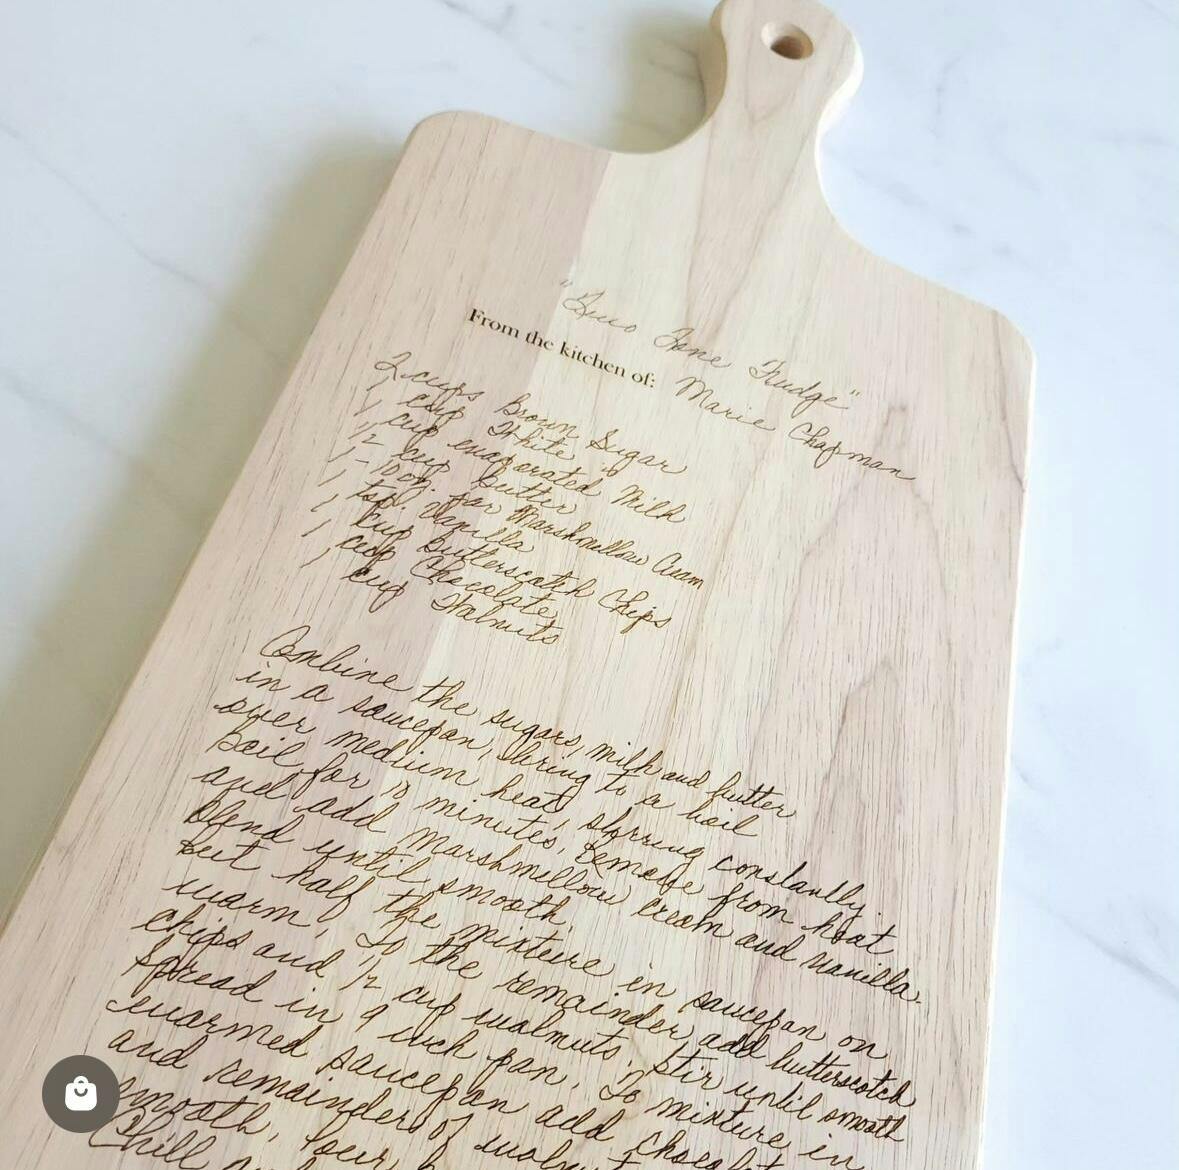 "Two Tone Fudge"
From the kitchen of: Marie Chapman
2 cups Brown Sugar
1 cup White "
1 cup evaporated Milk
1/2 cup butter
1-10 oz. jar Marshmellow Cream
1 tspl. Vanilla
1 cup Butterscotch Chips
1 cup Chocolate "
1 cup Walnuts
Combine the sugars, milk and butter
in a saucepan, bring to a boil
over medium heat, stirring constantly.
Boil for 10 minutes, remove from heat
and add Marshmellow cream and vanilla.
Blend until smooth.
Put half the mixture in saucepan on
warm. To the remainder, add butterscotch
chips and 1/2 cup walnuts. Stir until smooth
Spread in 9 inch pan. To mixture in
warmed saucepan add
and remainder of
smooth,
Chill